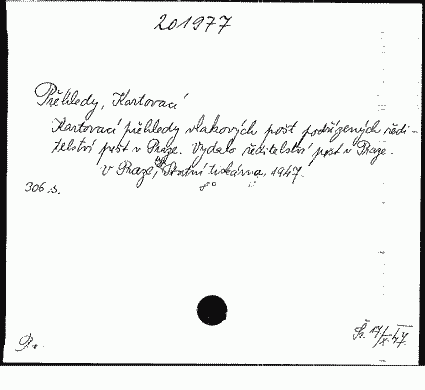 201977
Přehledy, Kartovací
Kartovací přehledy vlakových pošt podřízených ředi-
telství pošt v Praze. Vydalo ředitelství pošt v Praze.
V Praze, Státní tiskárna, 1947.
306 s. 8°
Př.
Š. 17/IX 47.